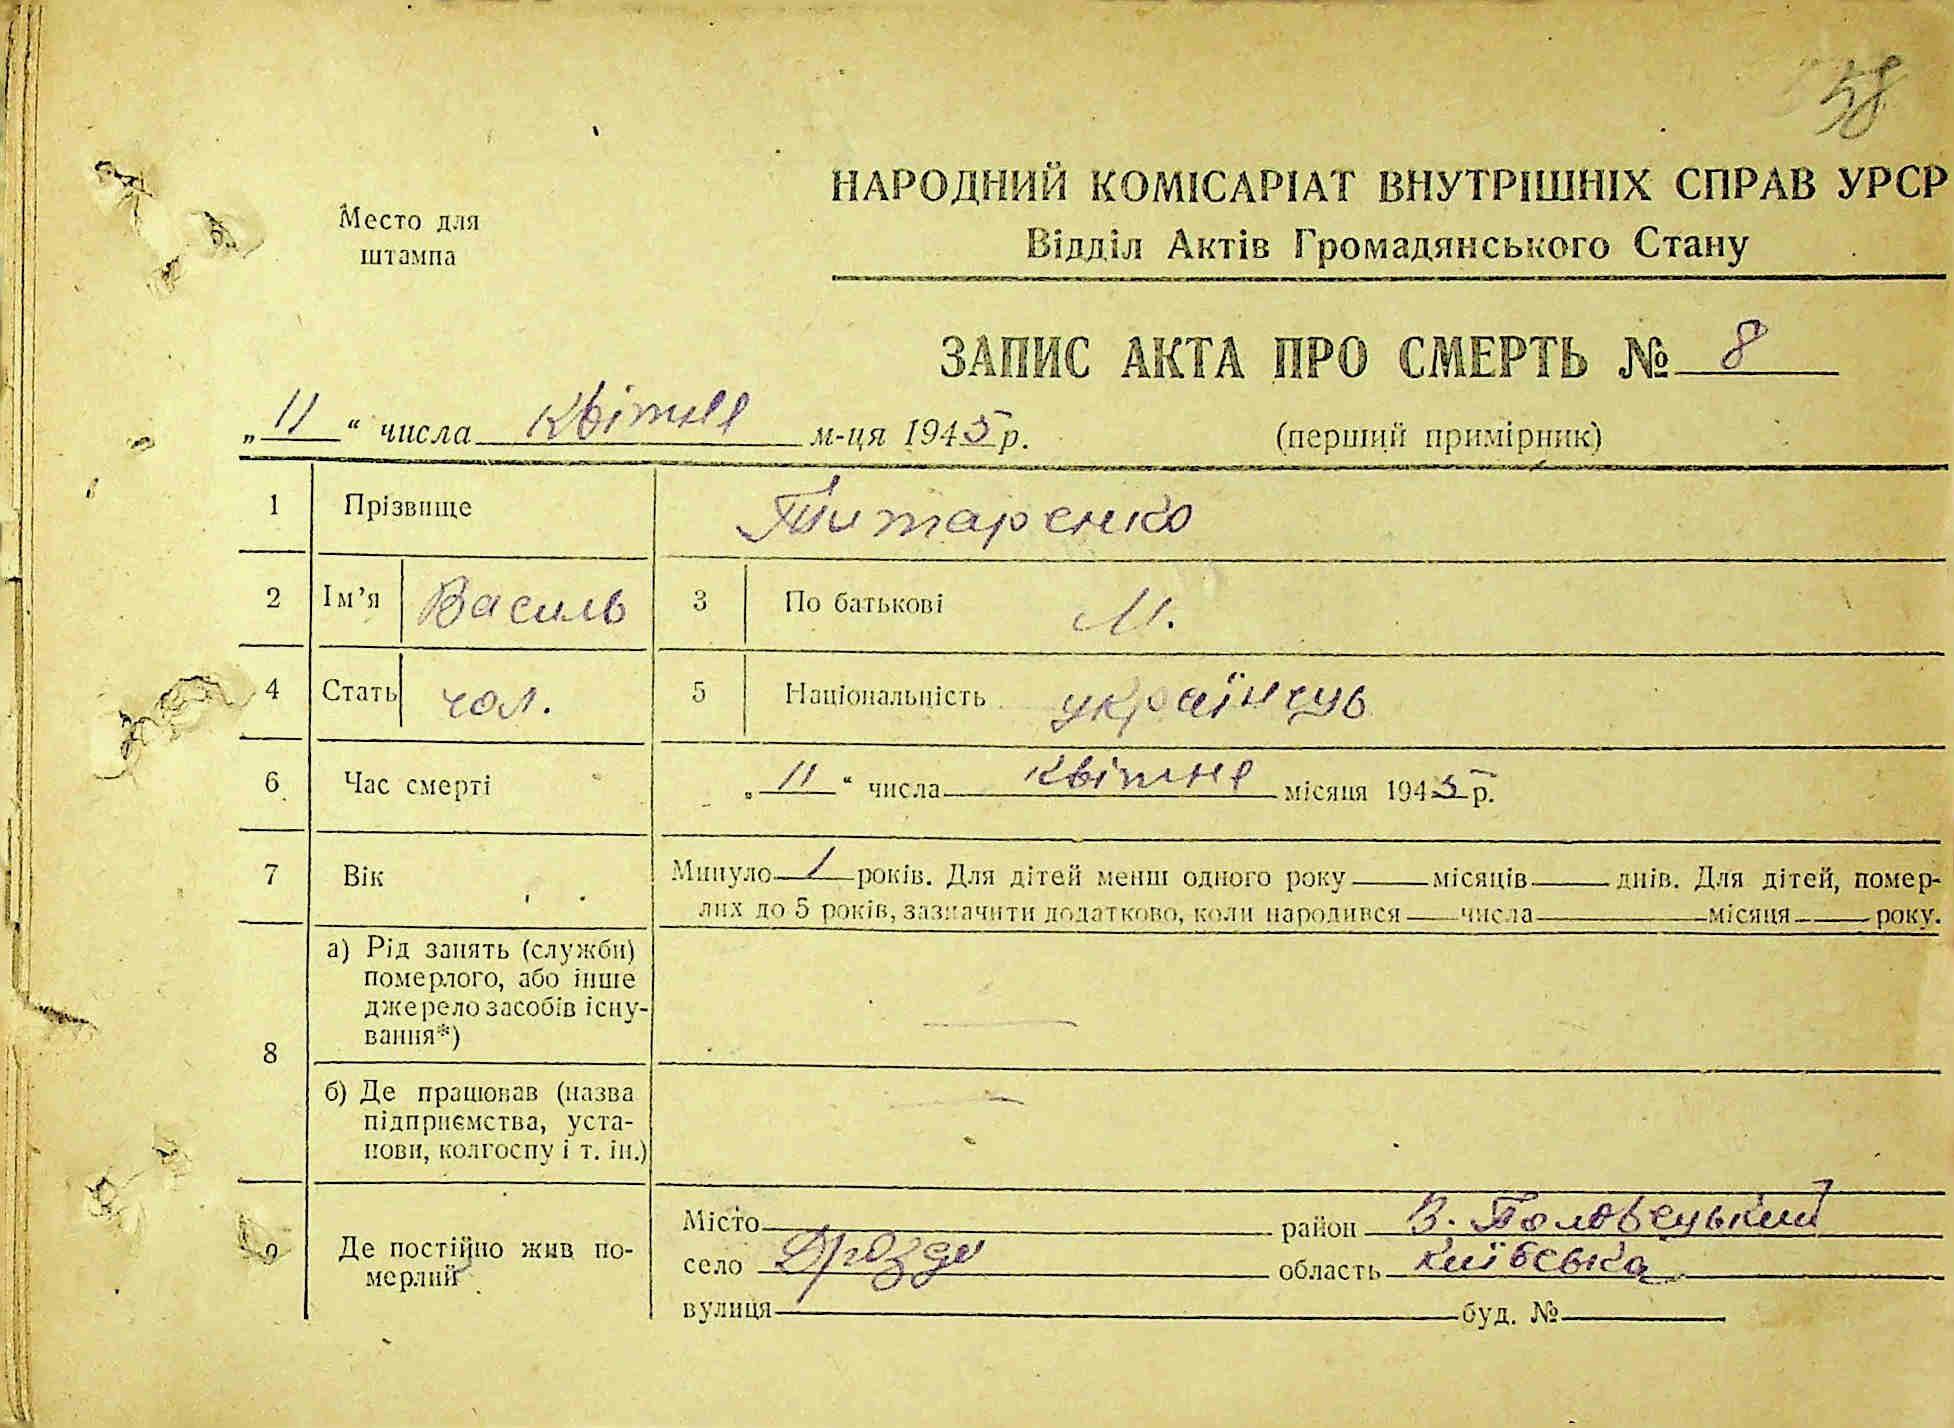 58
НАРОДНИЙ КОМІСАРІАТ ВНУТРІШНІХ СПРАВ УРСР
Место для
штампа
Відділ Актів Громадянського Стану
ЗАПИС АКТА ПРО СМЕРТЬ № 8
„11“ числа квітня м-ця 1945 р. (перший примірник)
1 Прізвище Титаренко
2 Ім’я Василь 3 По батькові М.
4 Стать чол. 5 Національність українець
6 Час смерті „11“ числа квітня місяця 1945 р.
7 Вік Минуло 1 років. Для дітей менш одного року місяців днів. Для дітей, помер-
лих до 5 років, зазначити додатково, коли народився числа місяця року.
8 а) Рід занять (служби)
померлого, або інше
джерело засобів існу-
вання*) —
б) Де працював (назва
підприємства, уста-
нови, колгоспу і т. ін.) —
9 Де постійно жив по-
мерлий
Місто район В. Половецький
село Дрозди область Київська
вулиця буд. №